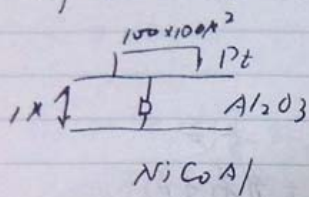 100x100μ²
Pt
1μ Al2O3
NiCoAl